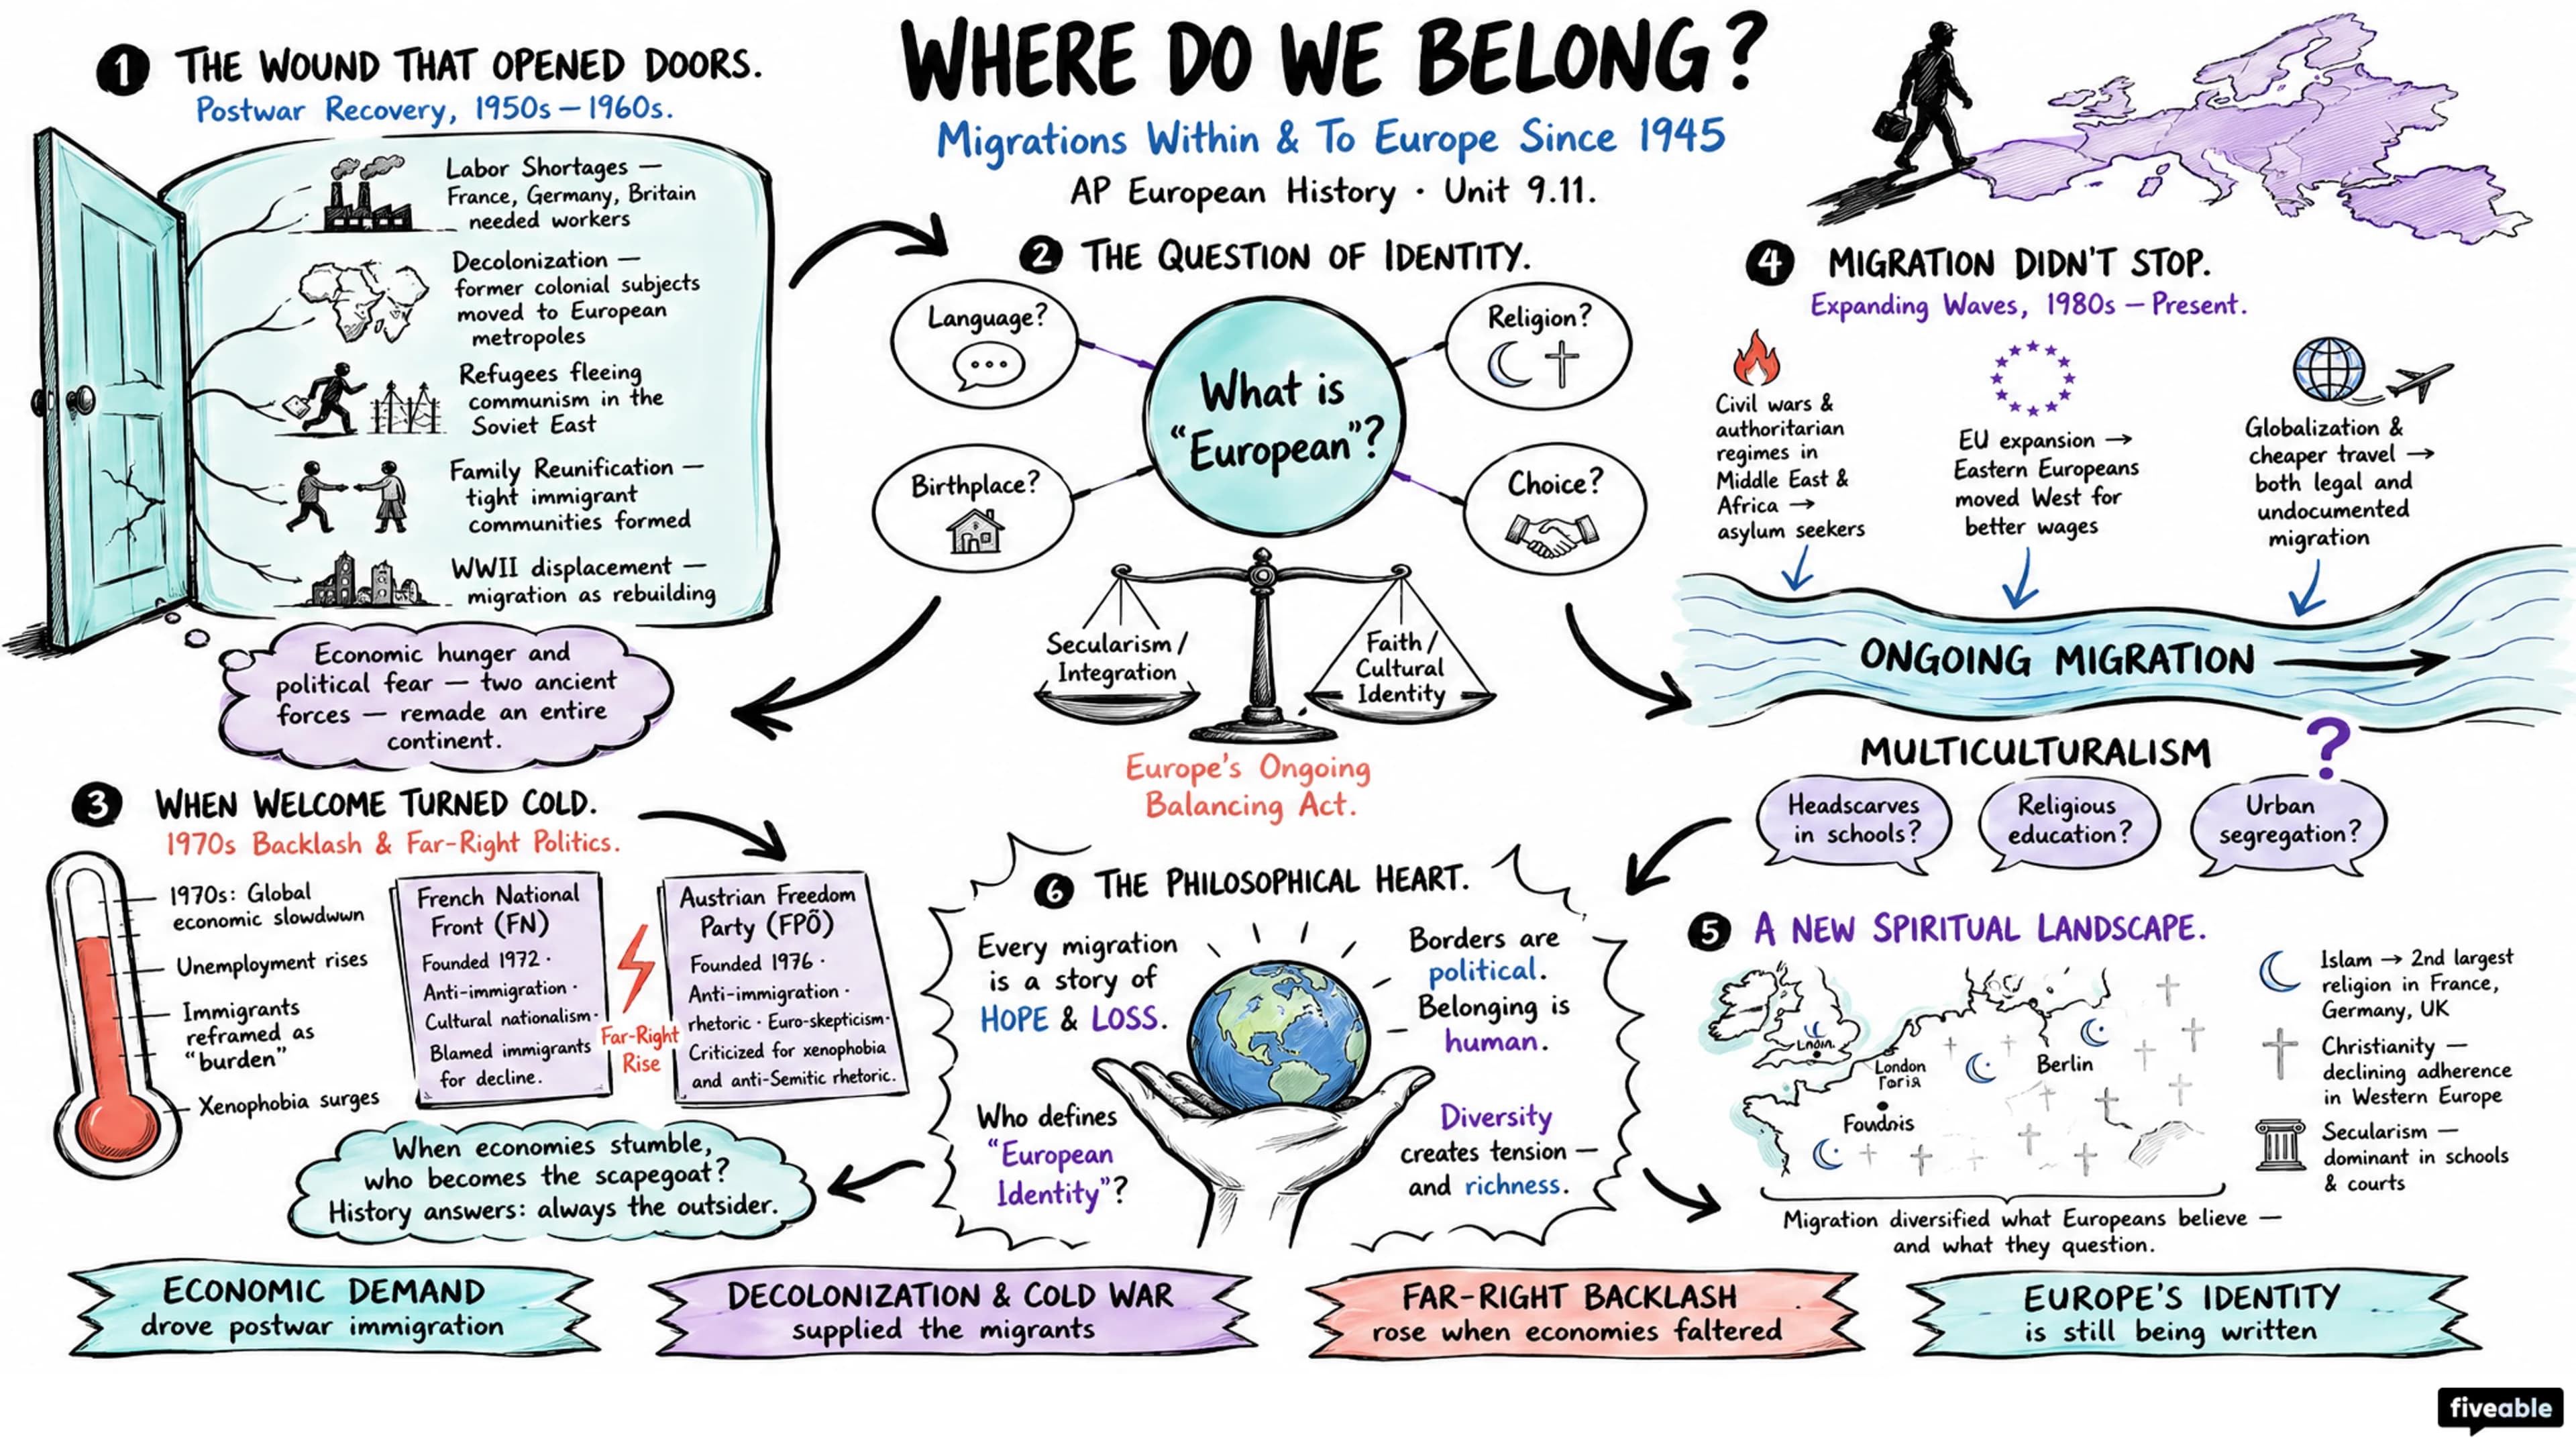 WHERE DO WE BELONG?
Migrations Within & To Europe Since 1945
AP European History · Unit 9.11.
1 THE WOUND THAT OPENED DOORS.
Postwar Recovery, 1950s – 1960s.
Labor Shortages —
France, Germany, Britain
needed workers
Decolonization —
former colonial subjects
moved to European
metropoles
Refugees fleeing
communism in the
Soviet East
Family Reunification —
tight immigrant
communities formed
WWII displacement —
migration as rebuilding
Economic hunger and
political fear — two ancient
forces — remade an entire
continent.
2 THE QUESTION OF IDENTITY.
Language?
Religion?
What is
“European”?
Birthplace?
Choice?
Secularism /
Integration
Faith /
Cultural
Identity
Europe's Ongoing
Balancing Act.
3 WHEN WELCOME TURNED COLD.
1970s Backlash & Far-Right Politics.
1970s: Global
economic slowdwwn
Unemployment rises
Immigrants
reframed as
“burden”
Xenophobia surges
French National
Front (FN)
Founded 1972 ·
Anti-immigration ·
Cultural nationalism·
Blamed immigrants
for decline.
Far-Right
Rise
Austrian Freedom
Party (FPÕ)
Founded 1976 ·
Anti-immigration ·
rhetoric · Euro-skepticism·
Criticized for xenophobia
and anti-Semitic rhetoric.
When economies stumble,
who becomes the scapegoat?
History answers: always the outsider.
4 MIGRATION DIDN'T STOP.
Expanding Waves, 1980s – Present.
Civil wars &
authoritarian
regimes in
Middle East &
Africa →
asylum seekers
EU expansion →
Eastern Europeans
moved West for
better wages
Globalization &
cheaper travel →
both legal and
undocumented
migration
ONGOING MIGRATION
MULTICULTURALISM
?
Headscarves
in schools?
Religious
education?
Urban
segregation?
5 A NEW SPIRITUAL LANDSCAPE.
London
Berlin
Foudnis
Islam → 2nd largest
religion in France,
Germany, UK
Christianity —
declining adherence
in Western Europe
Secularism —
dominant in schools
& courts
Migration diversified what Europeans believe —
and what they question.
6 THE PHILOSOPHICAL HEART.
Every migration
is a story of
HOPE & LOSS.
Borders are
political.
Belonging is
human.
Who defines
“European
Identity”?
Diversity
creates tension —
and richness.
ECONOMIC DEMAND
drove postwar immigration
DECOLONIZATION & COLD WAR
supplied the migrants
FAR-RIGHT BACKLASH
rose when economies faltered
EUROPE'S IDENTITY
is still being written
fiveable